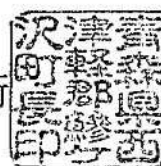 青森県西
津軽郡鰺ヶ
沢町長印